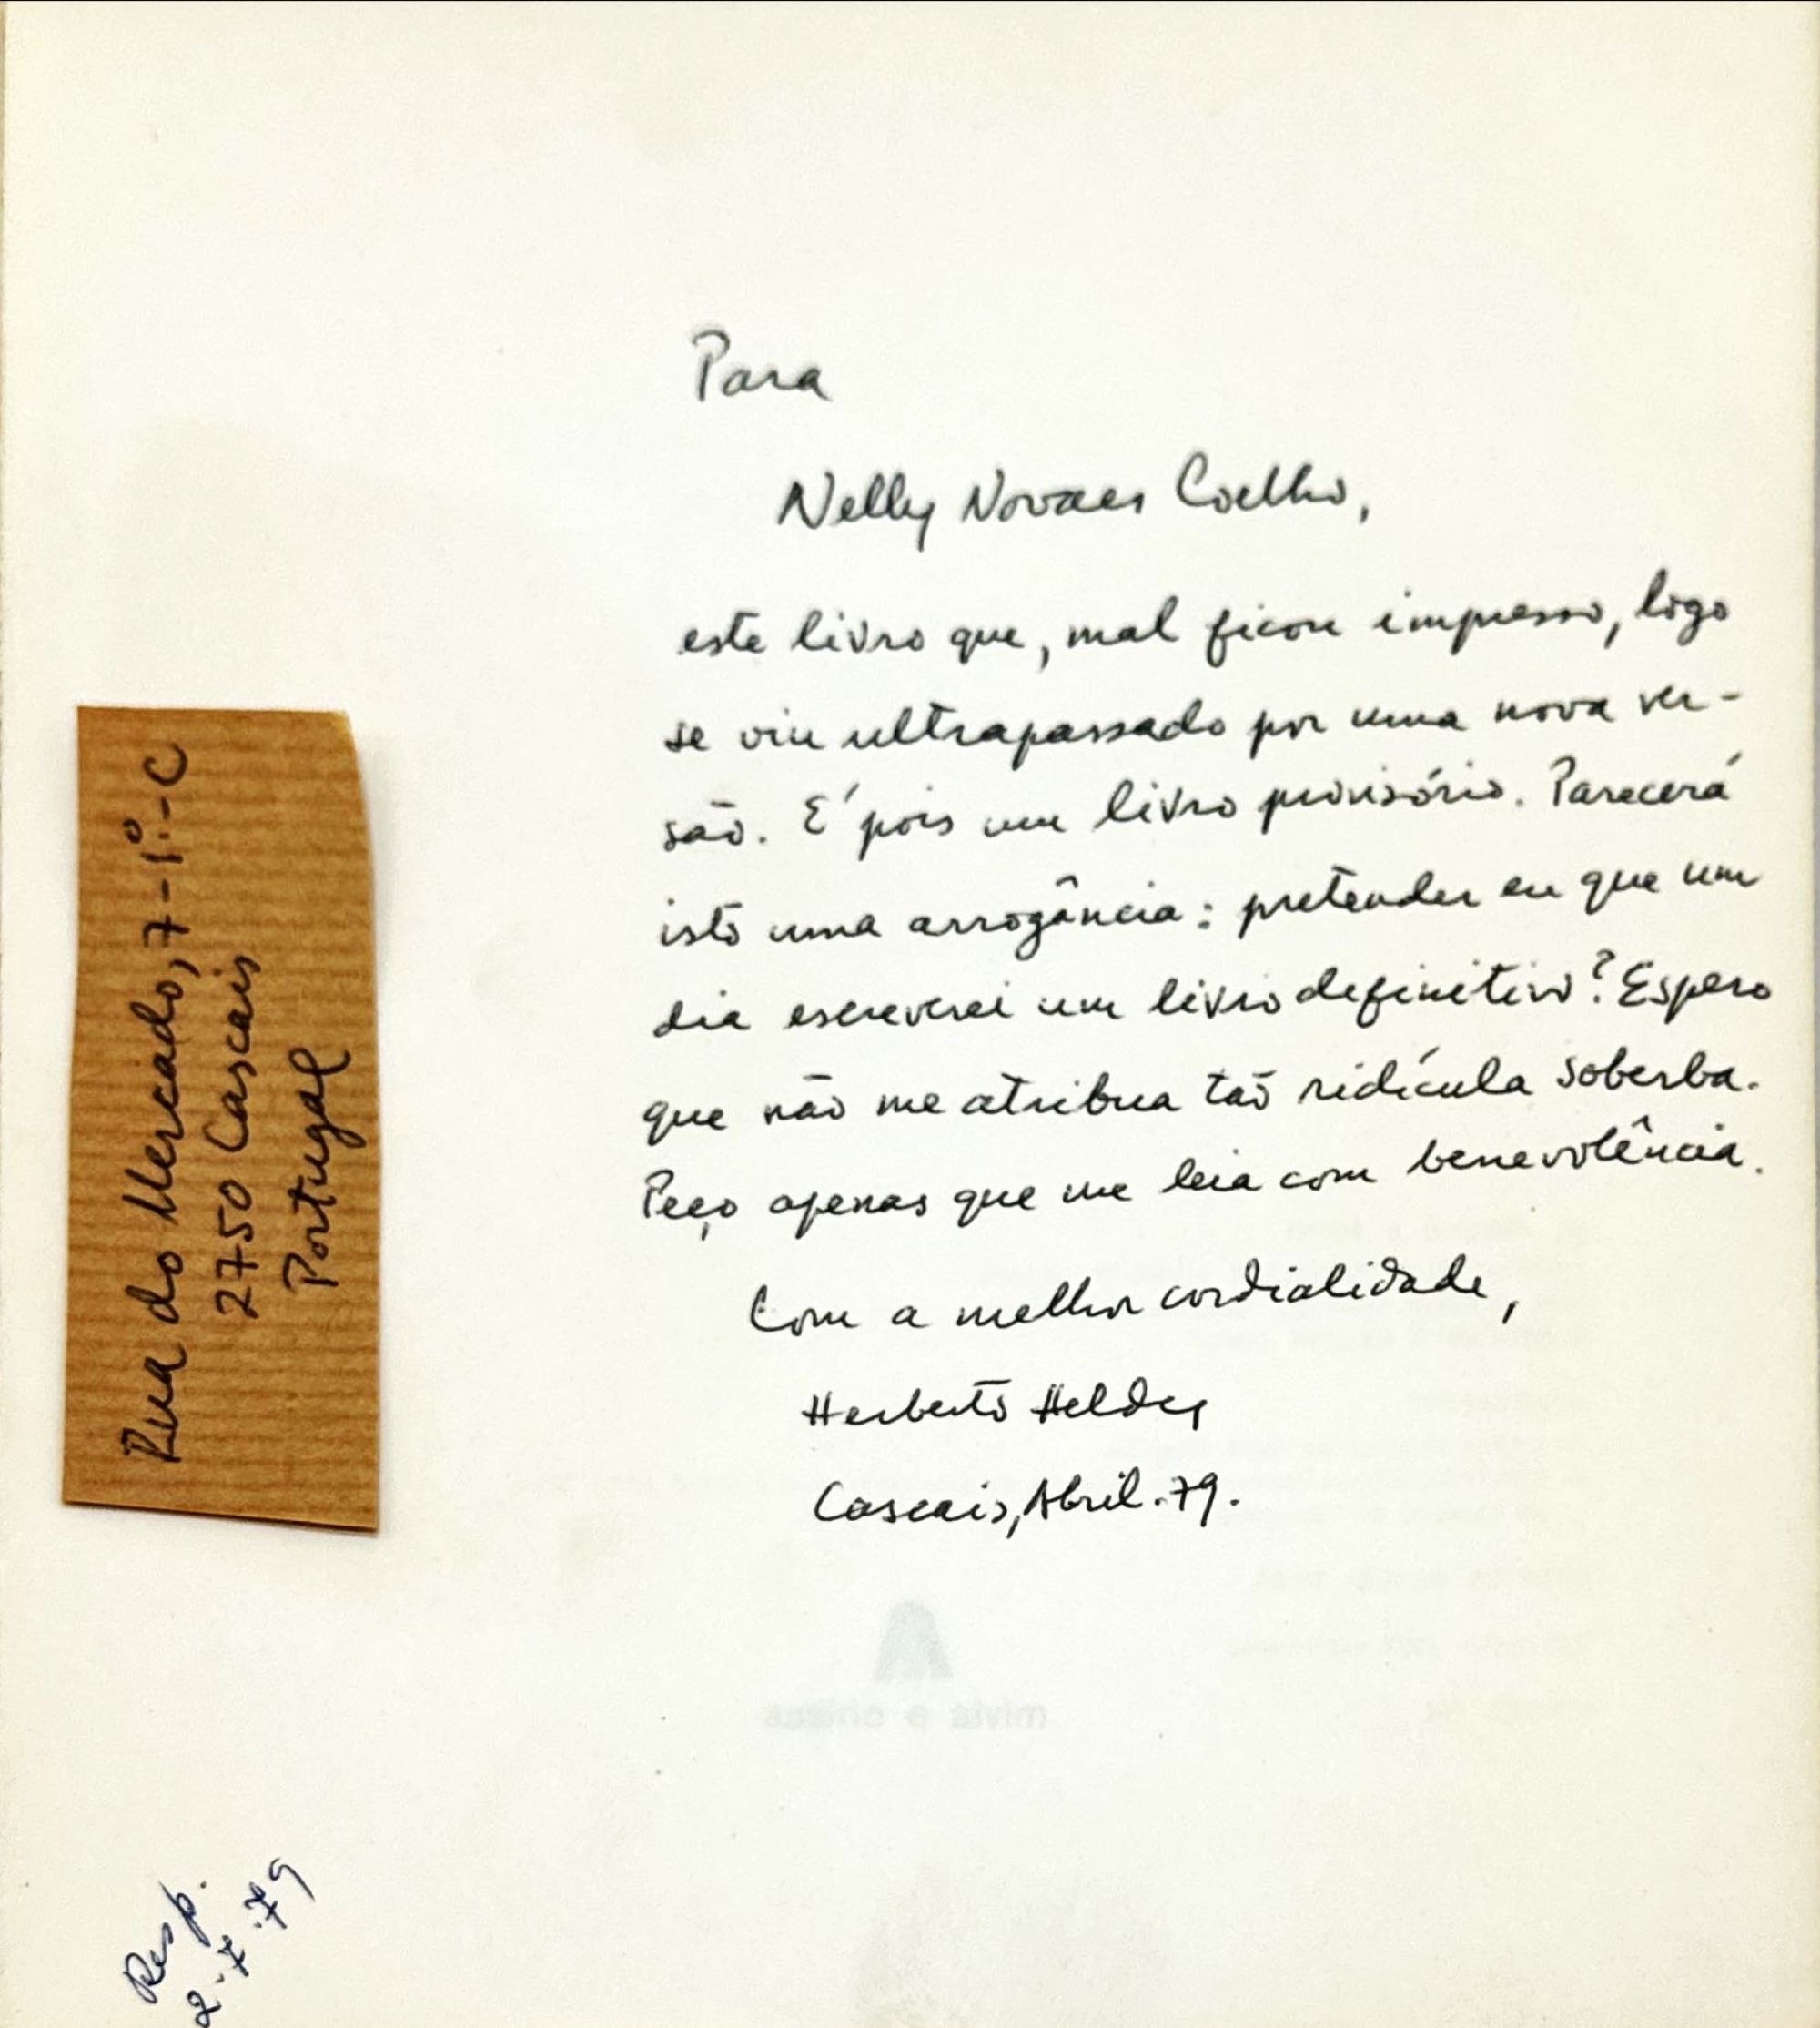 Para
Nelly Novaes Coelho,
este livro que, mal ficou impresso, logo
se viu ultrapassado por uma nova ver-
são. É pois um livro provisório. Parecerá
isto uma arrogância: pretender eu que um
dia escreverei um livro definitivo? Espero
que não me atribua tão ridícula soberba.
Peço apenas que me leia com benevolência.
Com a melhor cordialidade,
Herberto Helder
Cascais, Abril.79.
Rua do Mercado, 7-1º-C
2750 Cascais
Portugal
assírio e alvim
Resp.
2.7.79